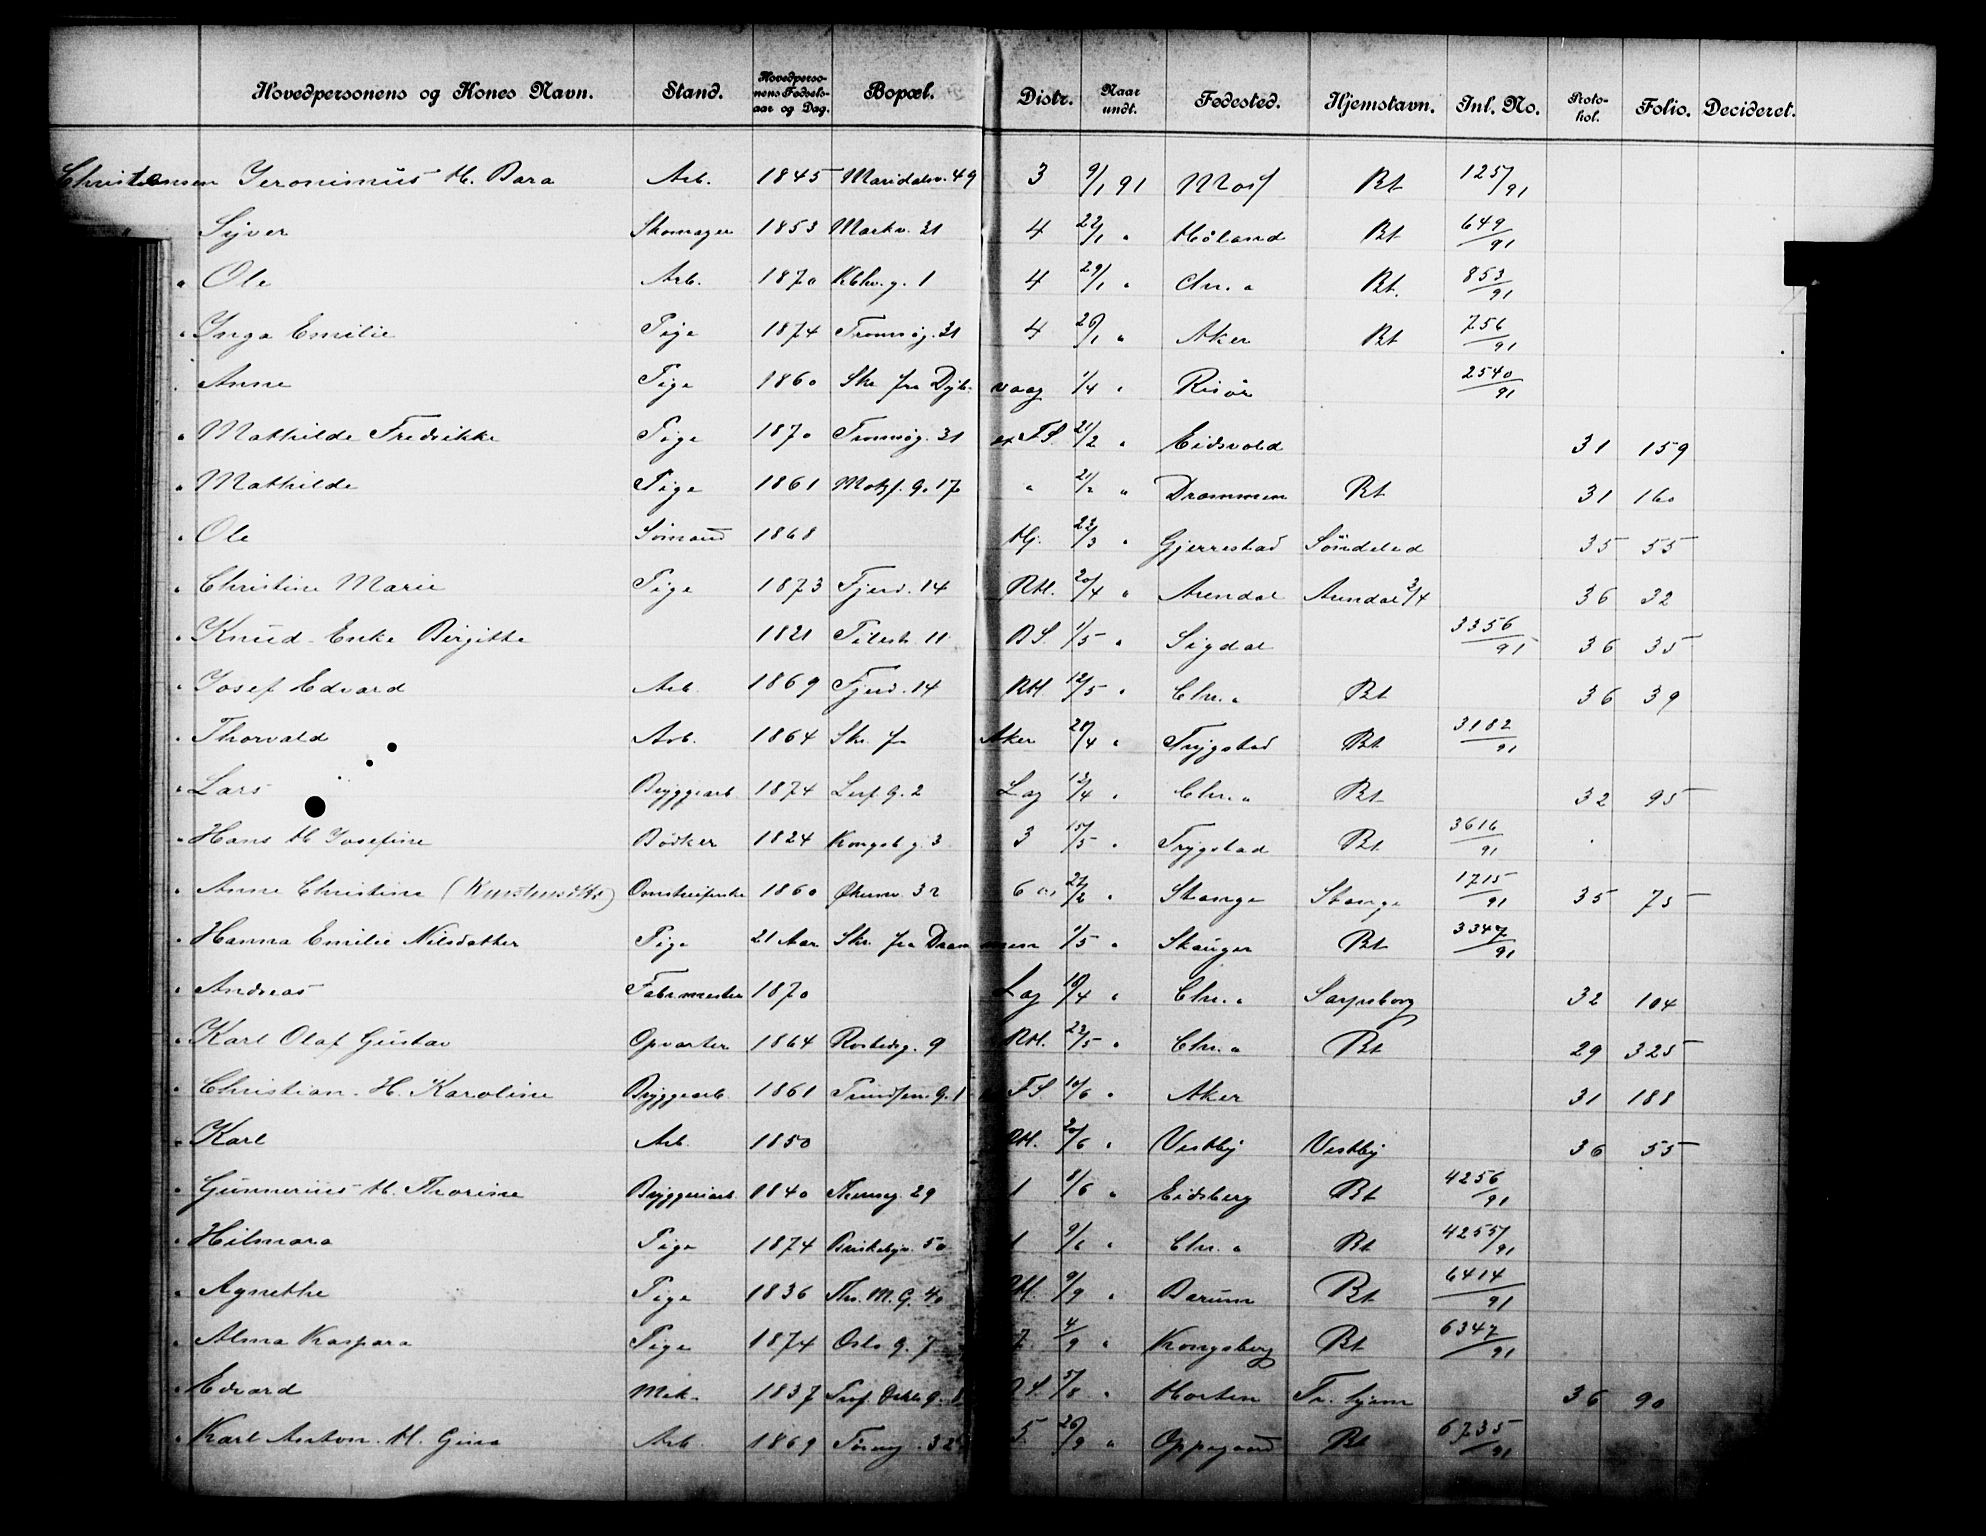 Hovedpersonens og Kones Navn. Stand. Hovedpersonens Fødselsaar og Dag. Bopæl. Distr. Naar undt. Fødested. Hjemstavn. Inl. No. Protokol. Folio. Decideret.
Christensen Jeronimus H. Bara Arb. 1845 Maridalsv. 49 3 9/1 91 Moss Bt 1257/91
Syver Skomager 1853 Markv. 31 4 22/1 " Høland Bt 649/91
" Ole Arb. 1870 Kbhv. g. 1 4 29/1 " Chr. a Bt. 853/91
" Inga Emilie Pige 1874 Tromsøg. 31 4 26/1 " Aker Bt 756/91
Anne Pige 1860 Skr. fra Dybvaag 1/4 " Risør 2540/91
" Mathilde Fredrikke Pige 1870 Tromsøg. 31 FS. 21/2 " Eidsvold 31 159
" Mathilde Pige 1861 Motzf. g. 17 " 21/2 " Drammen Bt 31 160
" Ole Sømand 1868 Hj. 23/3 " Gjerrestad Søndeled 35 55
" Christine Marie Pige 1873 Fjerd. 14 RH. 20/4 " Arendal Arendal 3/4 36 32
" Knud Enke Birgitte 1821 Tilest. 11 BS. 1/5 " Sigdal 3356/91 36 35
" Josef Edvard Arb. 1869 Fjerd. 14 RH. 12/5 " Chr. a Bt 36 39
" Thorvald Arb. 1864 Skr. fra Aker 28/4 " Trygstad Bt 3182/91
" Lars Bryggearb. 1874 Leif. g. 2 Lag 13/4 " Chr. a Bt 32 95
" Hans H Josefine Bødker 1824 Kongsb g. 3 3 15/5 " Trygstad Bt 3616/91
" Anne Christine 1860 Økernv. 32 6 22/2 " Stange Stange 1715/91 35 75
" Hanna Emilie Nilsdatter Pige 21 Aar Skr. fra Drammen 1/5 " Skauger Bt 3347/91
" Andreas 1870 Lag 18/4 " Chr. a Sarpsborg 32 104
" Karl Olaf Gustav Opvarter 1864 Rostedsg. 9 RH. 22/5 " Chr. a Bt 29 325
" Christian. H. Karoline Bryggearb. 1861 FS. 10/6 " Aker 31 188
" Karl Arb. 1850 RH. 20/6 " Vestby Vestby 36 55
" Gunnerius H. Thorine Bryggeriarb. 1840 29 1 8/6 " Eidsberg Bt 4256/91
" Hilmara Pige 1874 Briskebyv. 50 1 9/6 " Chr. a Bt 4255/91
" Agnethe Pige 1836 Th. M. G. 40 RH. 9/9 " Bærum Bt 6414/91
" Alma Kaspara Pige 1874 Oslo g. 7 7 4/9 " Kongsberg Bt 6347/91
" Edvard Mek. 1837 5/8 " Horten Tr. hjem 36 90
" Karl Anton. H. Gina Arb. 1869 32 5 26/9 " Oppegaard Bt 6735/91